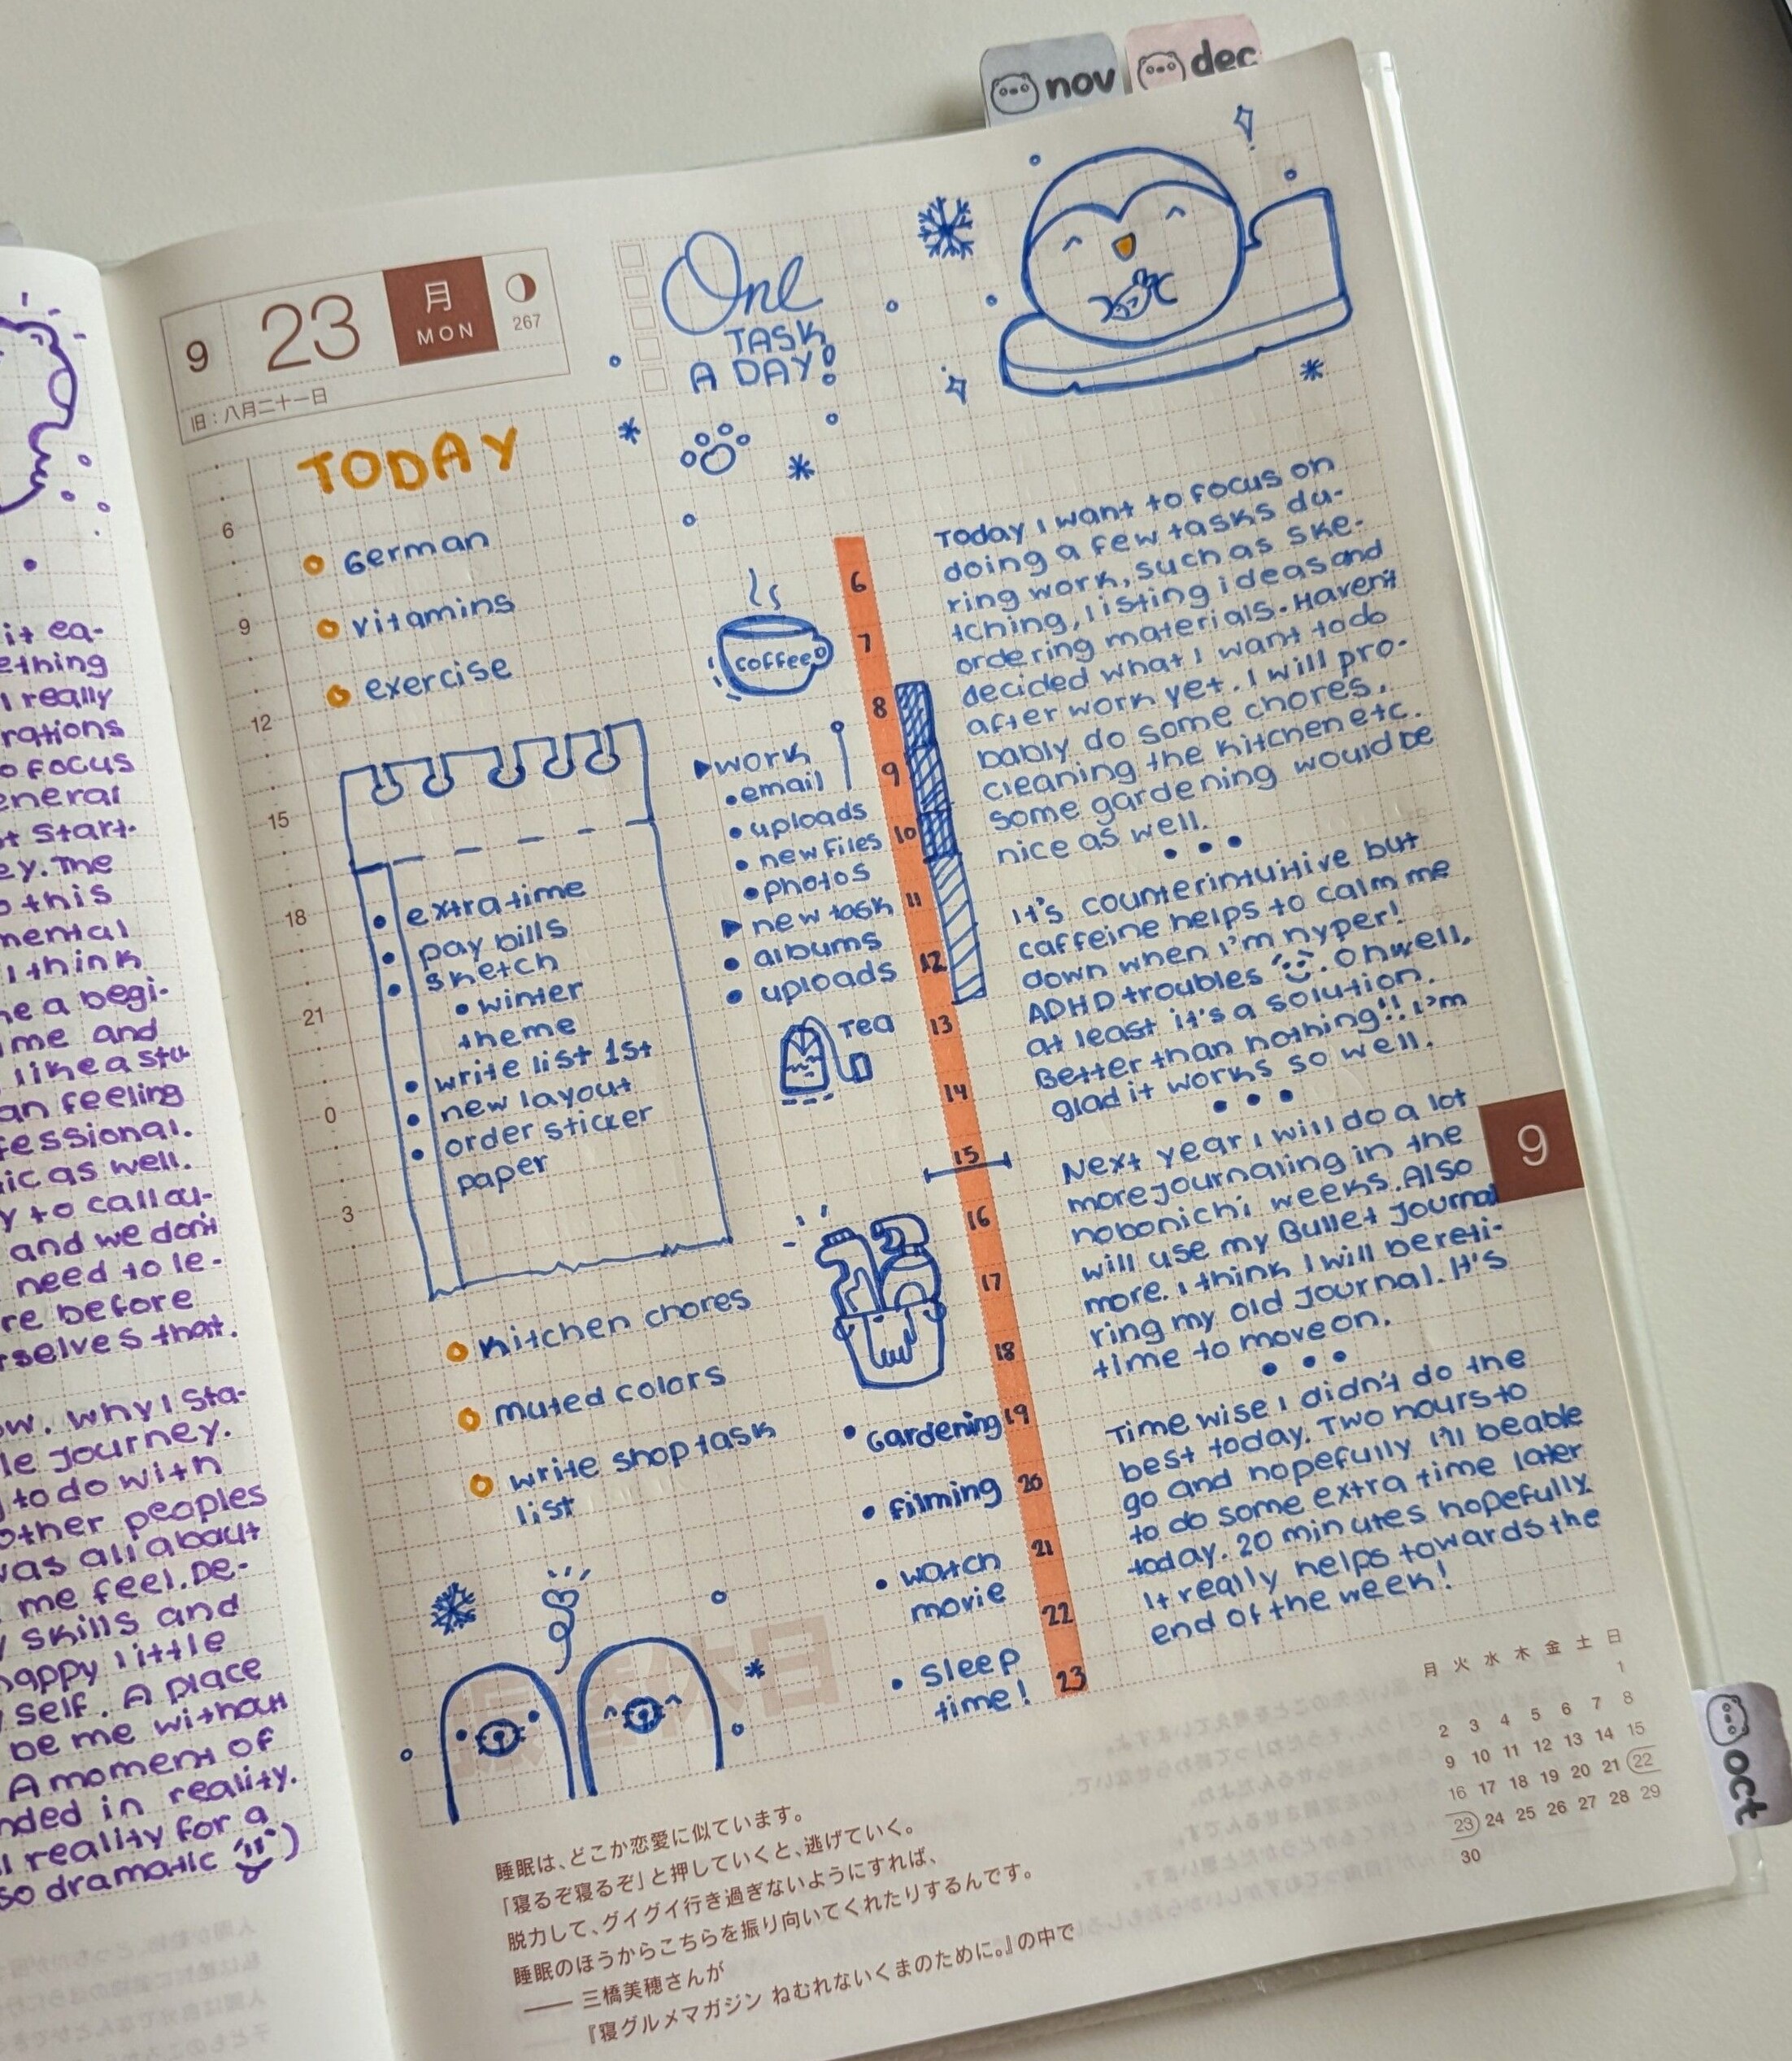 nov
dec
9
23
月
MON
267
旧:八月二十一日
One
TASK
A DAY!
TODAY
6
9
12
15
18
21
0
3
German
vitamins
exercise
extra time
pay bills
sketch
winter
theme
write list 1st
new layout
order sticker
paper
kitchen chores
muted colors
write shop task
list
coffee
work
email
uploads
new files
photos
new task
albums
uploads
TEA
Gardening
Filming
watch
movie
Sleep
time!
6
7
8
9
10
11
12
13
14
15
16
17
18
19
20
21
22
23
Today I want to focus on
doing a few tasks du-
ring work, such as ske-
tching, listing ideas and
ordering materials. Haven't
decided what I want to do
after work yet. I will pro-
bably do some chores,
cleaning the kitchen etc.
Some gardening would be
nice as well.
It's counterintuitive but
caffeine helps to calm me
down when I'm hyper!
ADHD troubles. Oh well,
at least it's a solution.
Better than nothing!! I'm
glad it works so well.
Next year I will do a lot
more journaling in the
hobonichi weeks. Also
will use my Bullet Journal
more. I think I will be reti-
ring my old journal. It's
time to move on.
Time wise I didn't do the
best today. Two hours to
go and hopefully I'll be able
to do some extra time later
today. 20 minutes hopefully.
It really helps towards the
end of the week!
9
月 火 水 木 金 土 日
1
2 3 4 5 6 7 8
9 10 11 12 13 14 15
16 17 18 19 20 21 22
23 24 25 26 27 28 29
30
oct
睡眠は、どこか恋愛に似ています。
「寝るぞ寝るぞ」と押していくと、逃げていく。
脱力して、グイグイ行き過ぎないようにすれば、
睡眠のほうからこちらを振り向いてくれたりするんです。
── 三橋美穂さんが
『寝グルメマガジン ねむれないくまのために。』の中で
it ea-
ething
I really
rations
o focus
eneral
t start.
ey. The
o this
mental
I think
ne a begi-
me and
like a stu-
an feeling
fessional.
ic as well.
y to call ou-
and we don't
need to le-
re before
rselves that.
ow. Why I sta-
le journey.
to do with
other peoples
was all about
me feel. De-
skills and
happy little
self. A place
be me without
A moment of
nded in reality.
l reality for a
so dramatic )